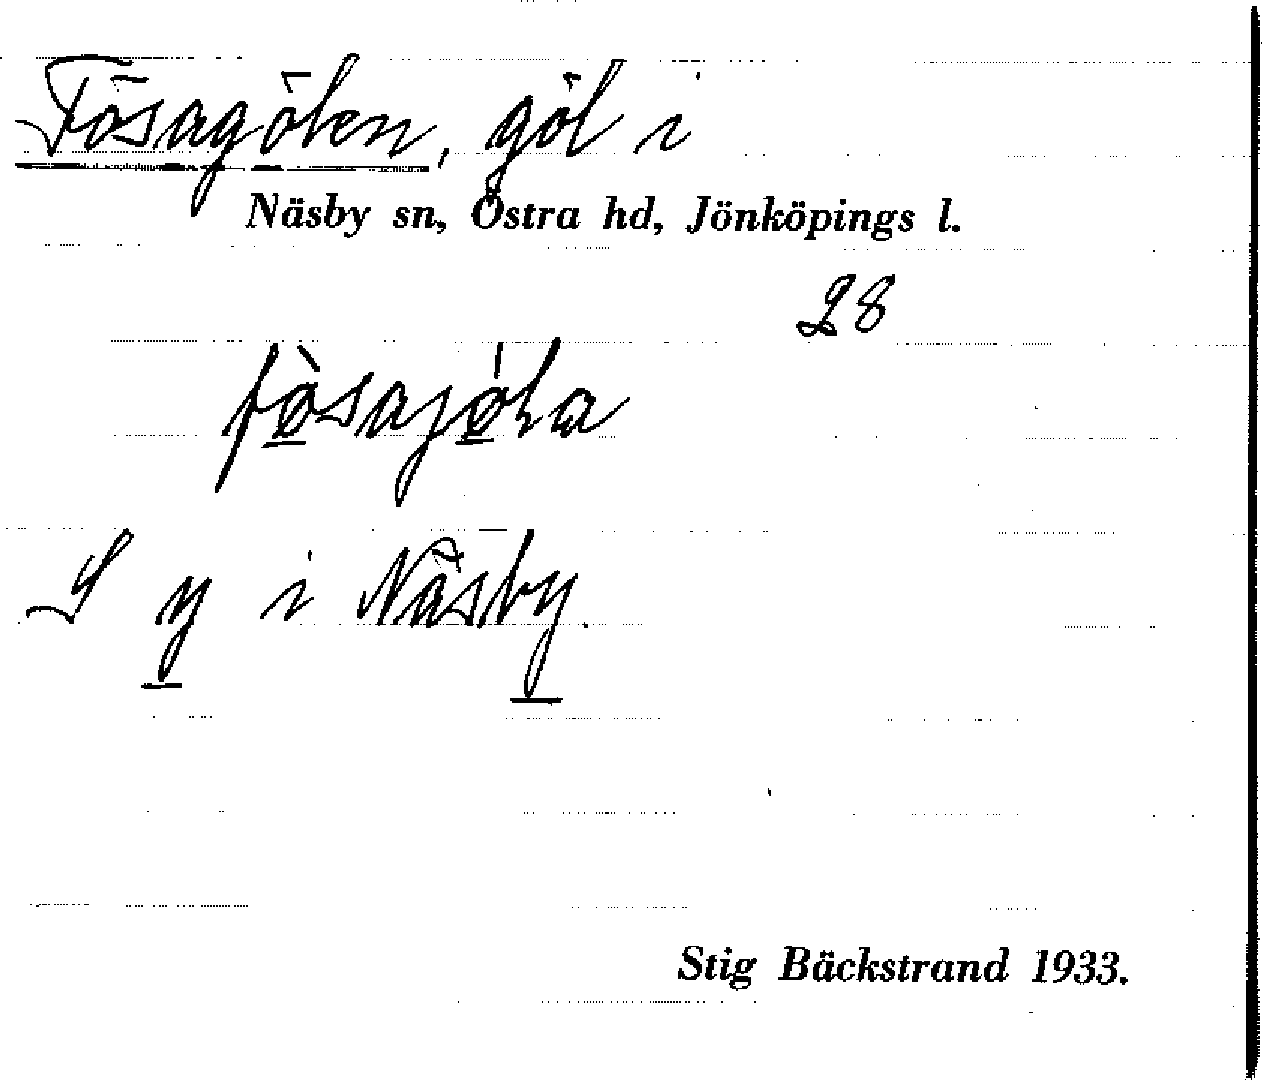 Fösagölen, göl i
Näsby sn, Östra hd, Jönköpings l.
28
S y i Näsby.
Stig Bäckstrand 1933.